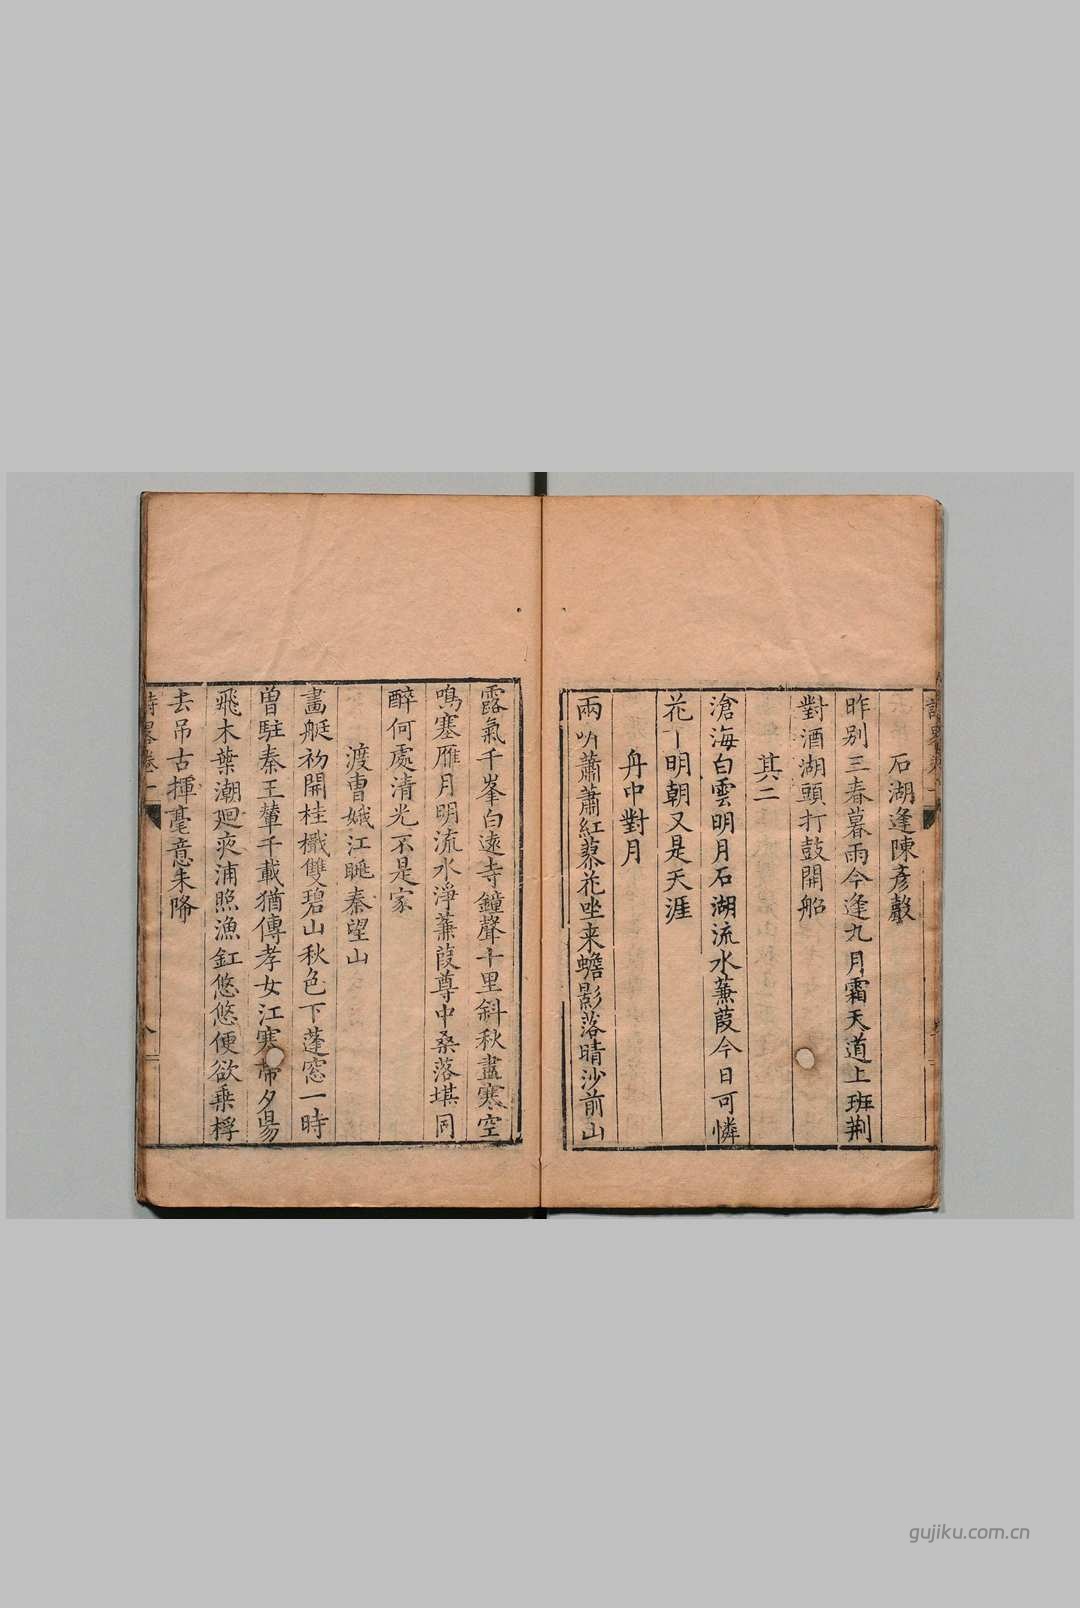 石湖逢陳彥
昨别三春暮雨今逢九月霜天道上班荆
對酒湖頭打鼓開船
其二
滄海白雲明月石湖流水蒹葭今日可憐
花丨明朝又是天涯
舟中對月
兩蕭蕭紅蓼花坐来蟾影落晴沙前山
露氣千峯白遠寺鐘聲十里斜秋盡寒空
鳴塞雁月明流水淨蒹葭尊中桑落堪同
醉何處清光不是家
渡曹娥江眺秦望山
畫艇初開桂檝雙碧山秋色下蓬窓一時
曾駐秦王輦千載猶傳孝女江寒帶夕陽
飛木葉潮廻夾浦照漁釭悠悠便欲乗桴
去吊古揮毫意未降
詩畧卷一
八
gujiku.com.cn